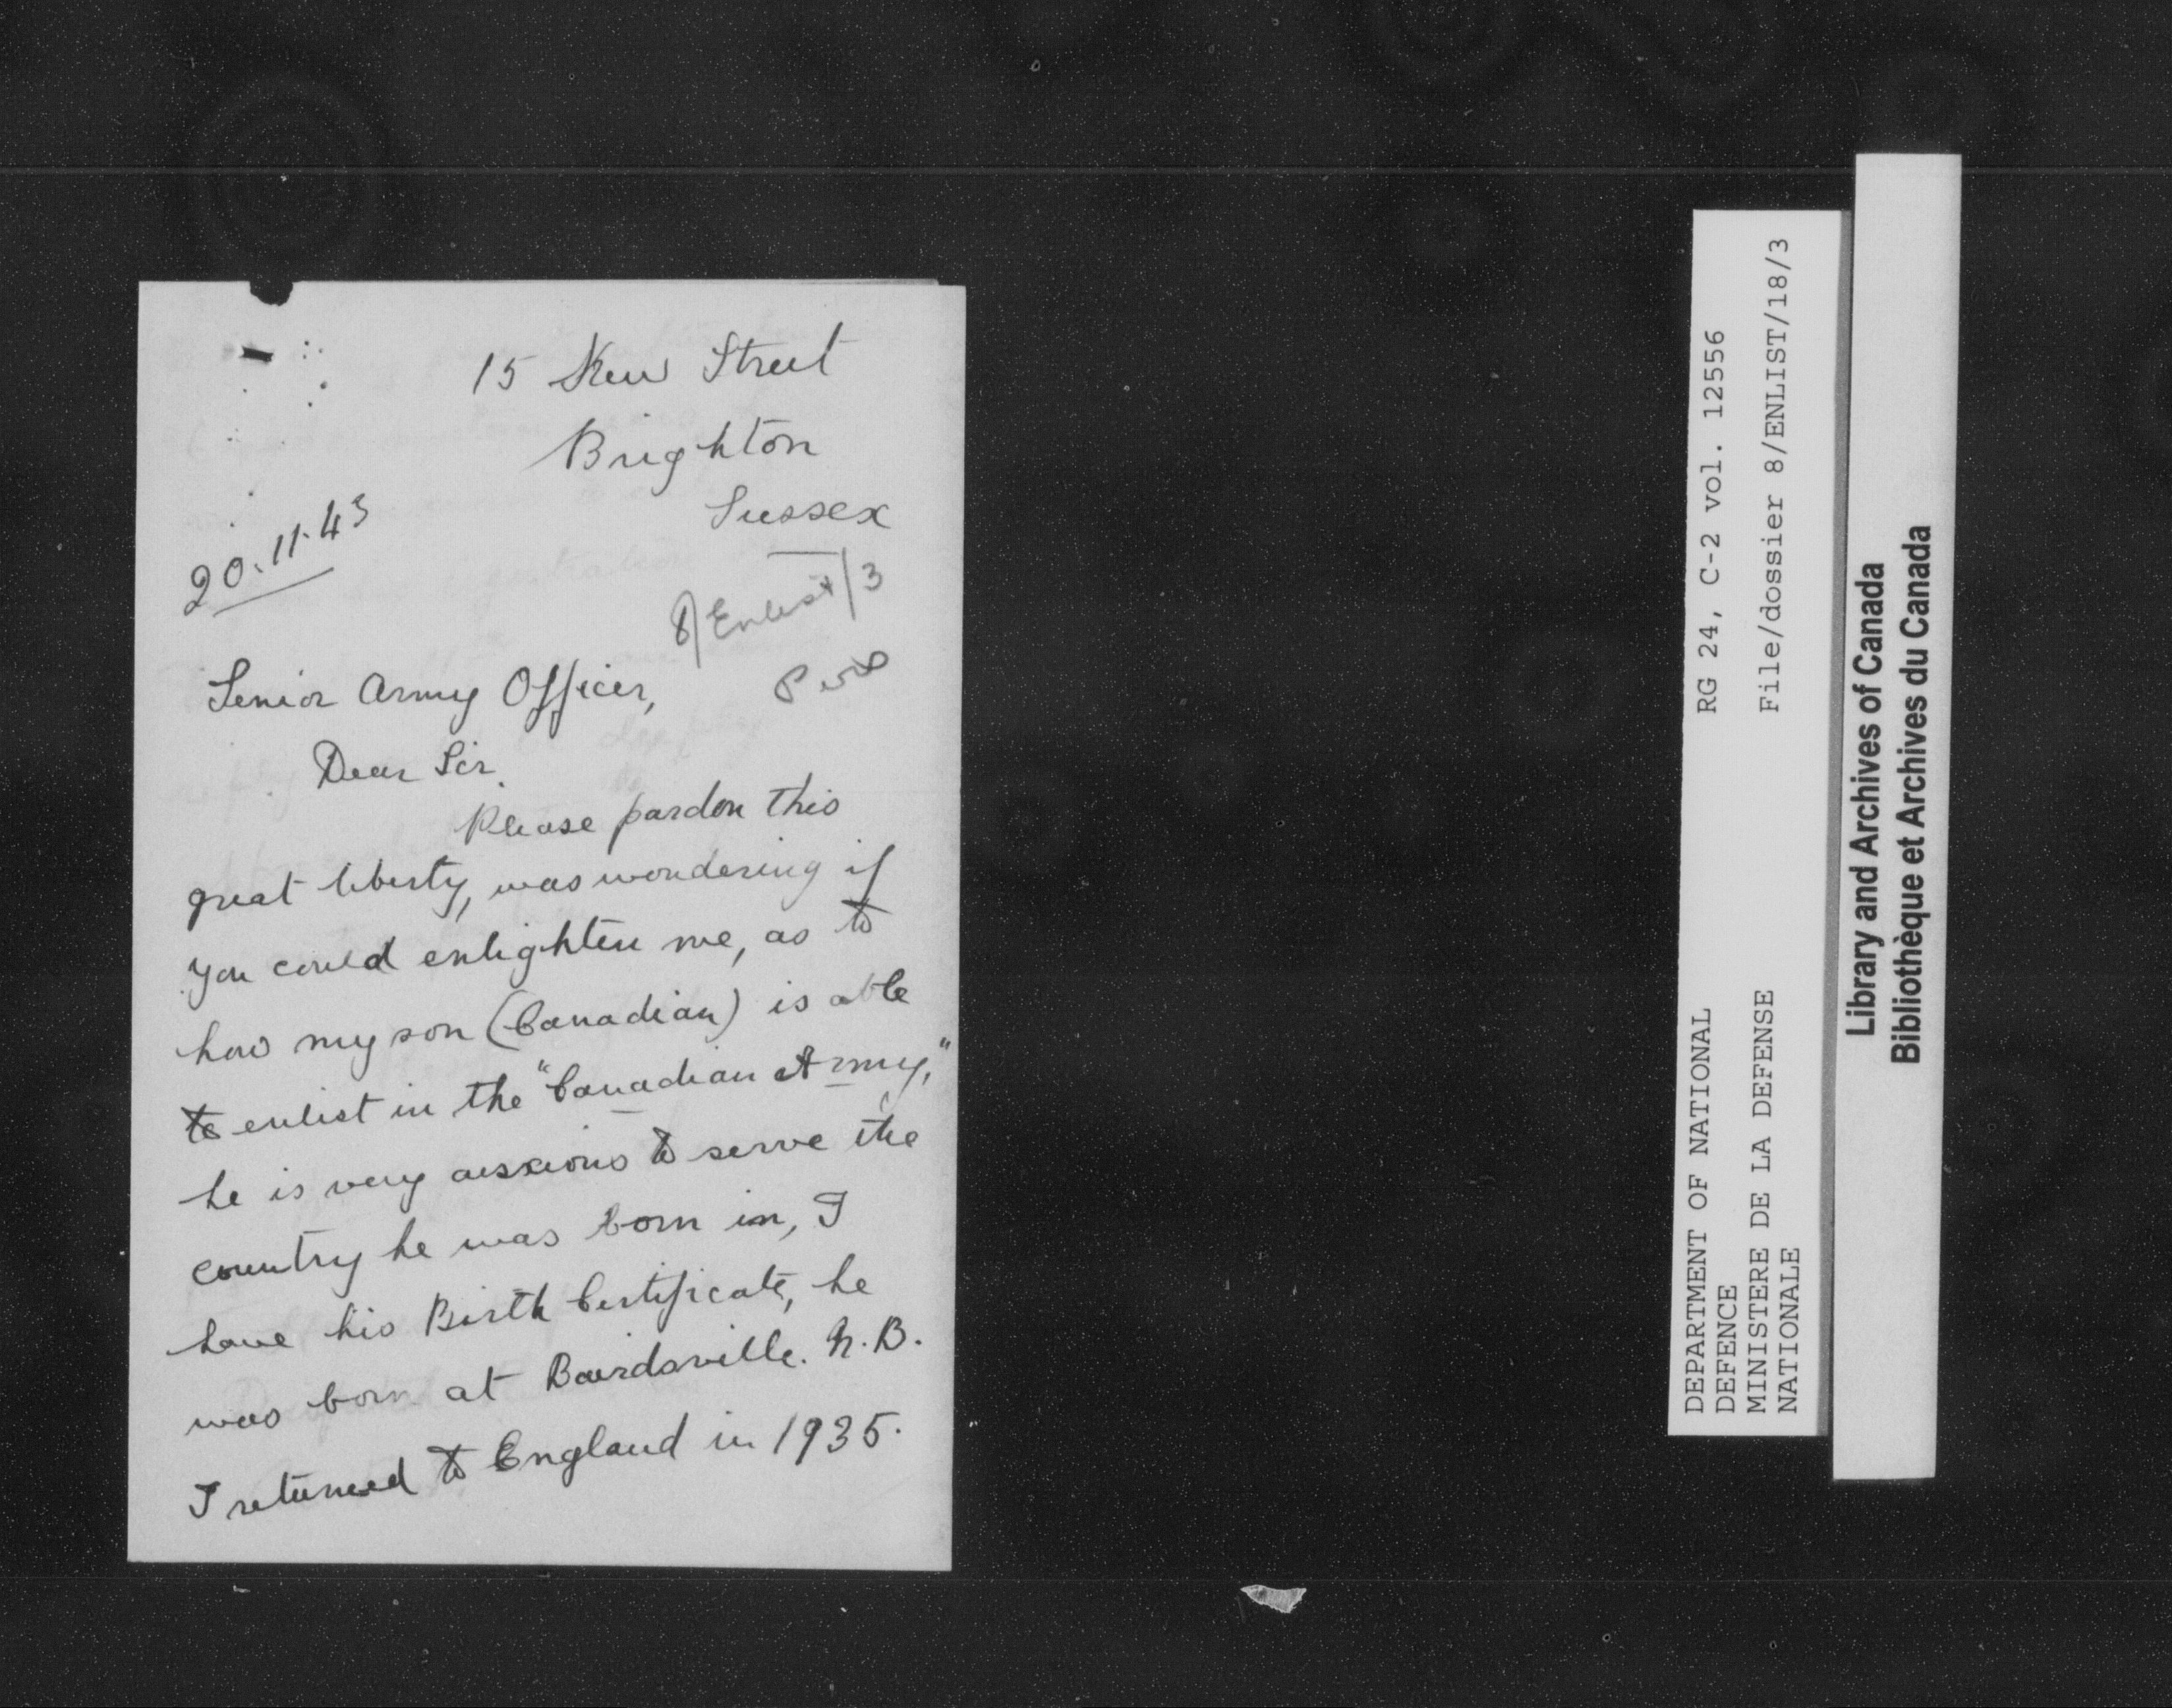 15 Kew Street
Brighton
Sussex
20.11.43
8/Enlist/3
Senior Army Officer,
Dear Sir.
Please pardon this
great liberty, was wondering if
you could enlighten me, as to
how my son (Canadian) is able
to enlist in the "Canadian Army,"
he is very anxious to serve the
country he was born in, I
have his Birth Certificate, he
was born at Bairdsville. N.B.
I returned to England in 1935.
RG 24, C-2 vol. 12556
File/dossier 8/ENLIST/18/3
DEPARTMENT OF NATIONAL
DEFENCE
MINISTERE DE LA DEFENSE
NATIONALE
Library and Archives of Canada
Bibliothèque et Archives du Canada